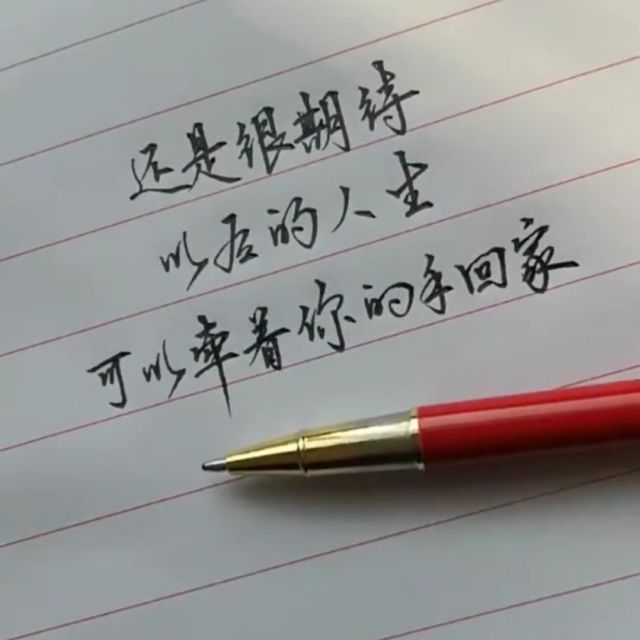 还是很期待
以后的人生
可以牵着你的手回家